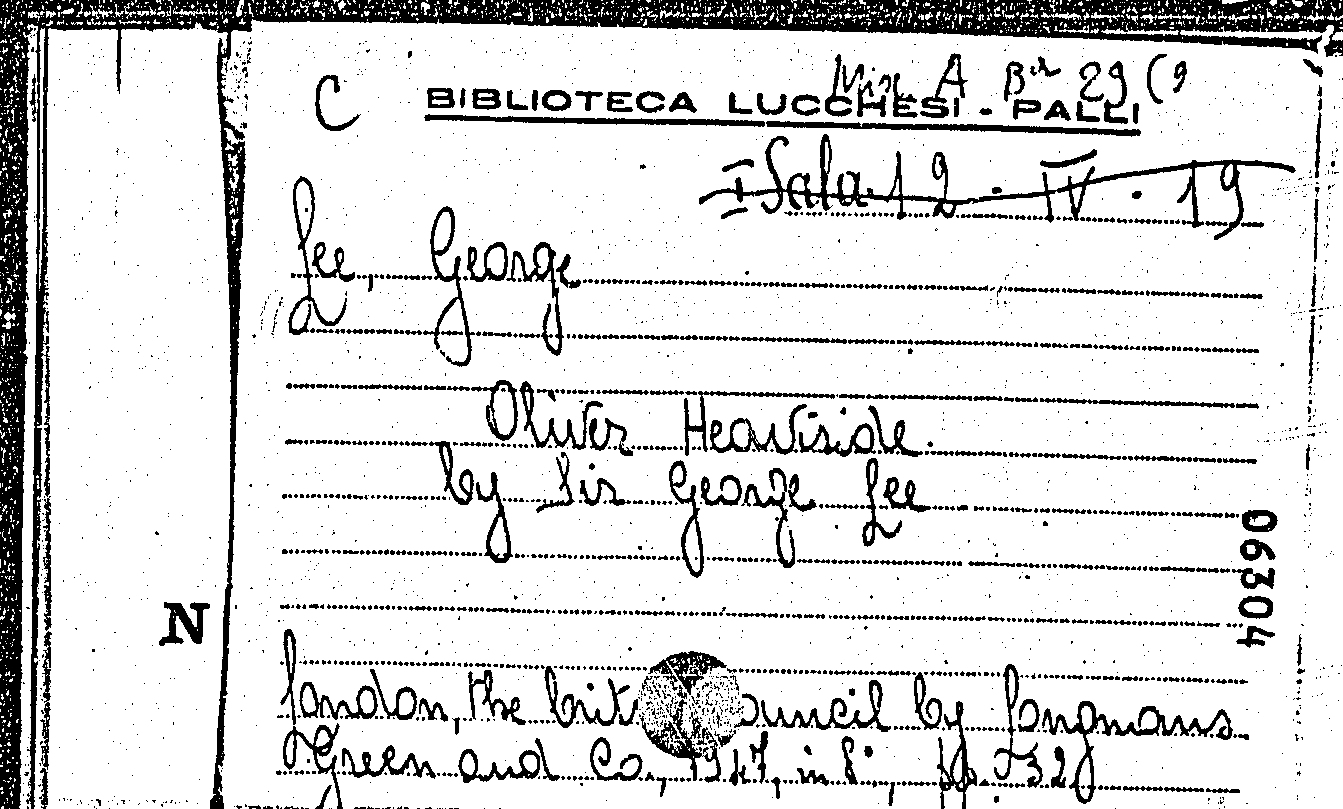 C Misc. A Bta 29 (9
BIBLIOTECA LUCCHESI - PALLI
I Sala 12 · IV · 19
Lee, George
Oliver Heaviside.
by Sir George Lee
06304
N
London, the Brit ouncil by Longmans
Green and Co., 1947, in 8°, pp. 32